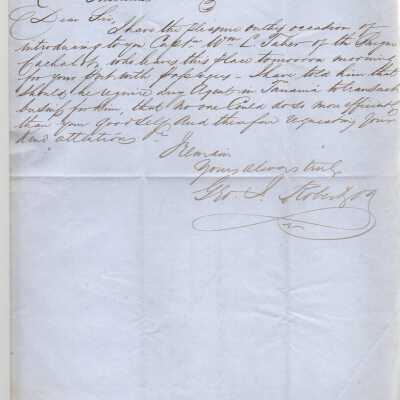 Dear Sir,
I have the pleasure on this occasion of
introducing to you Capt. Wm. C. Taber of the
Cachalot, who leaves this place tomorrow morning
for your Port with passengers - I have told him that
should he require any Agent in Panama to transact
business for him, that no one could do so more efficiently
than your good self And therefore requesting your
kind attentions
I remain
Yours always truly
Geo. S. Robertson